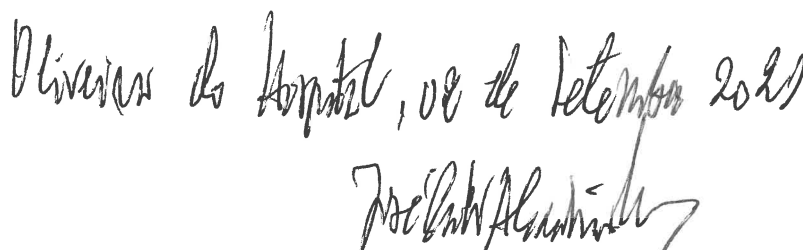 Oliveira do Hospital, 02 de Setembro 2021
José